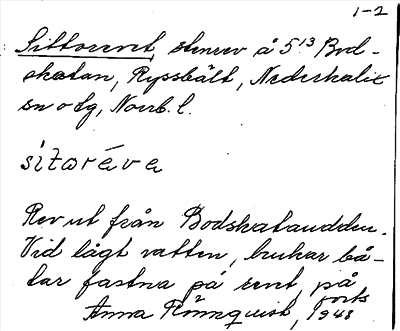 1-2
Sittorevet, stenrev å 5¹³ Bod-
skatan, Ryssbält, Nederkalix
sn o tg, Norrb. l.
sitoréva
Rev ut från Bodskataudden.
Vid lågt vatten, brukar bå-
tar fastna på revet, på
Anna Rönnquist, 1948